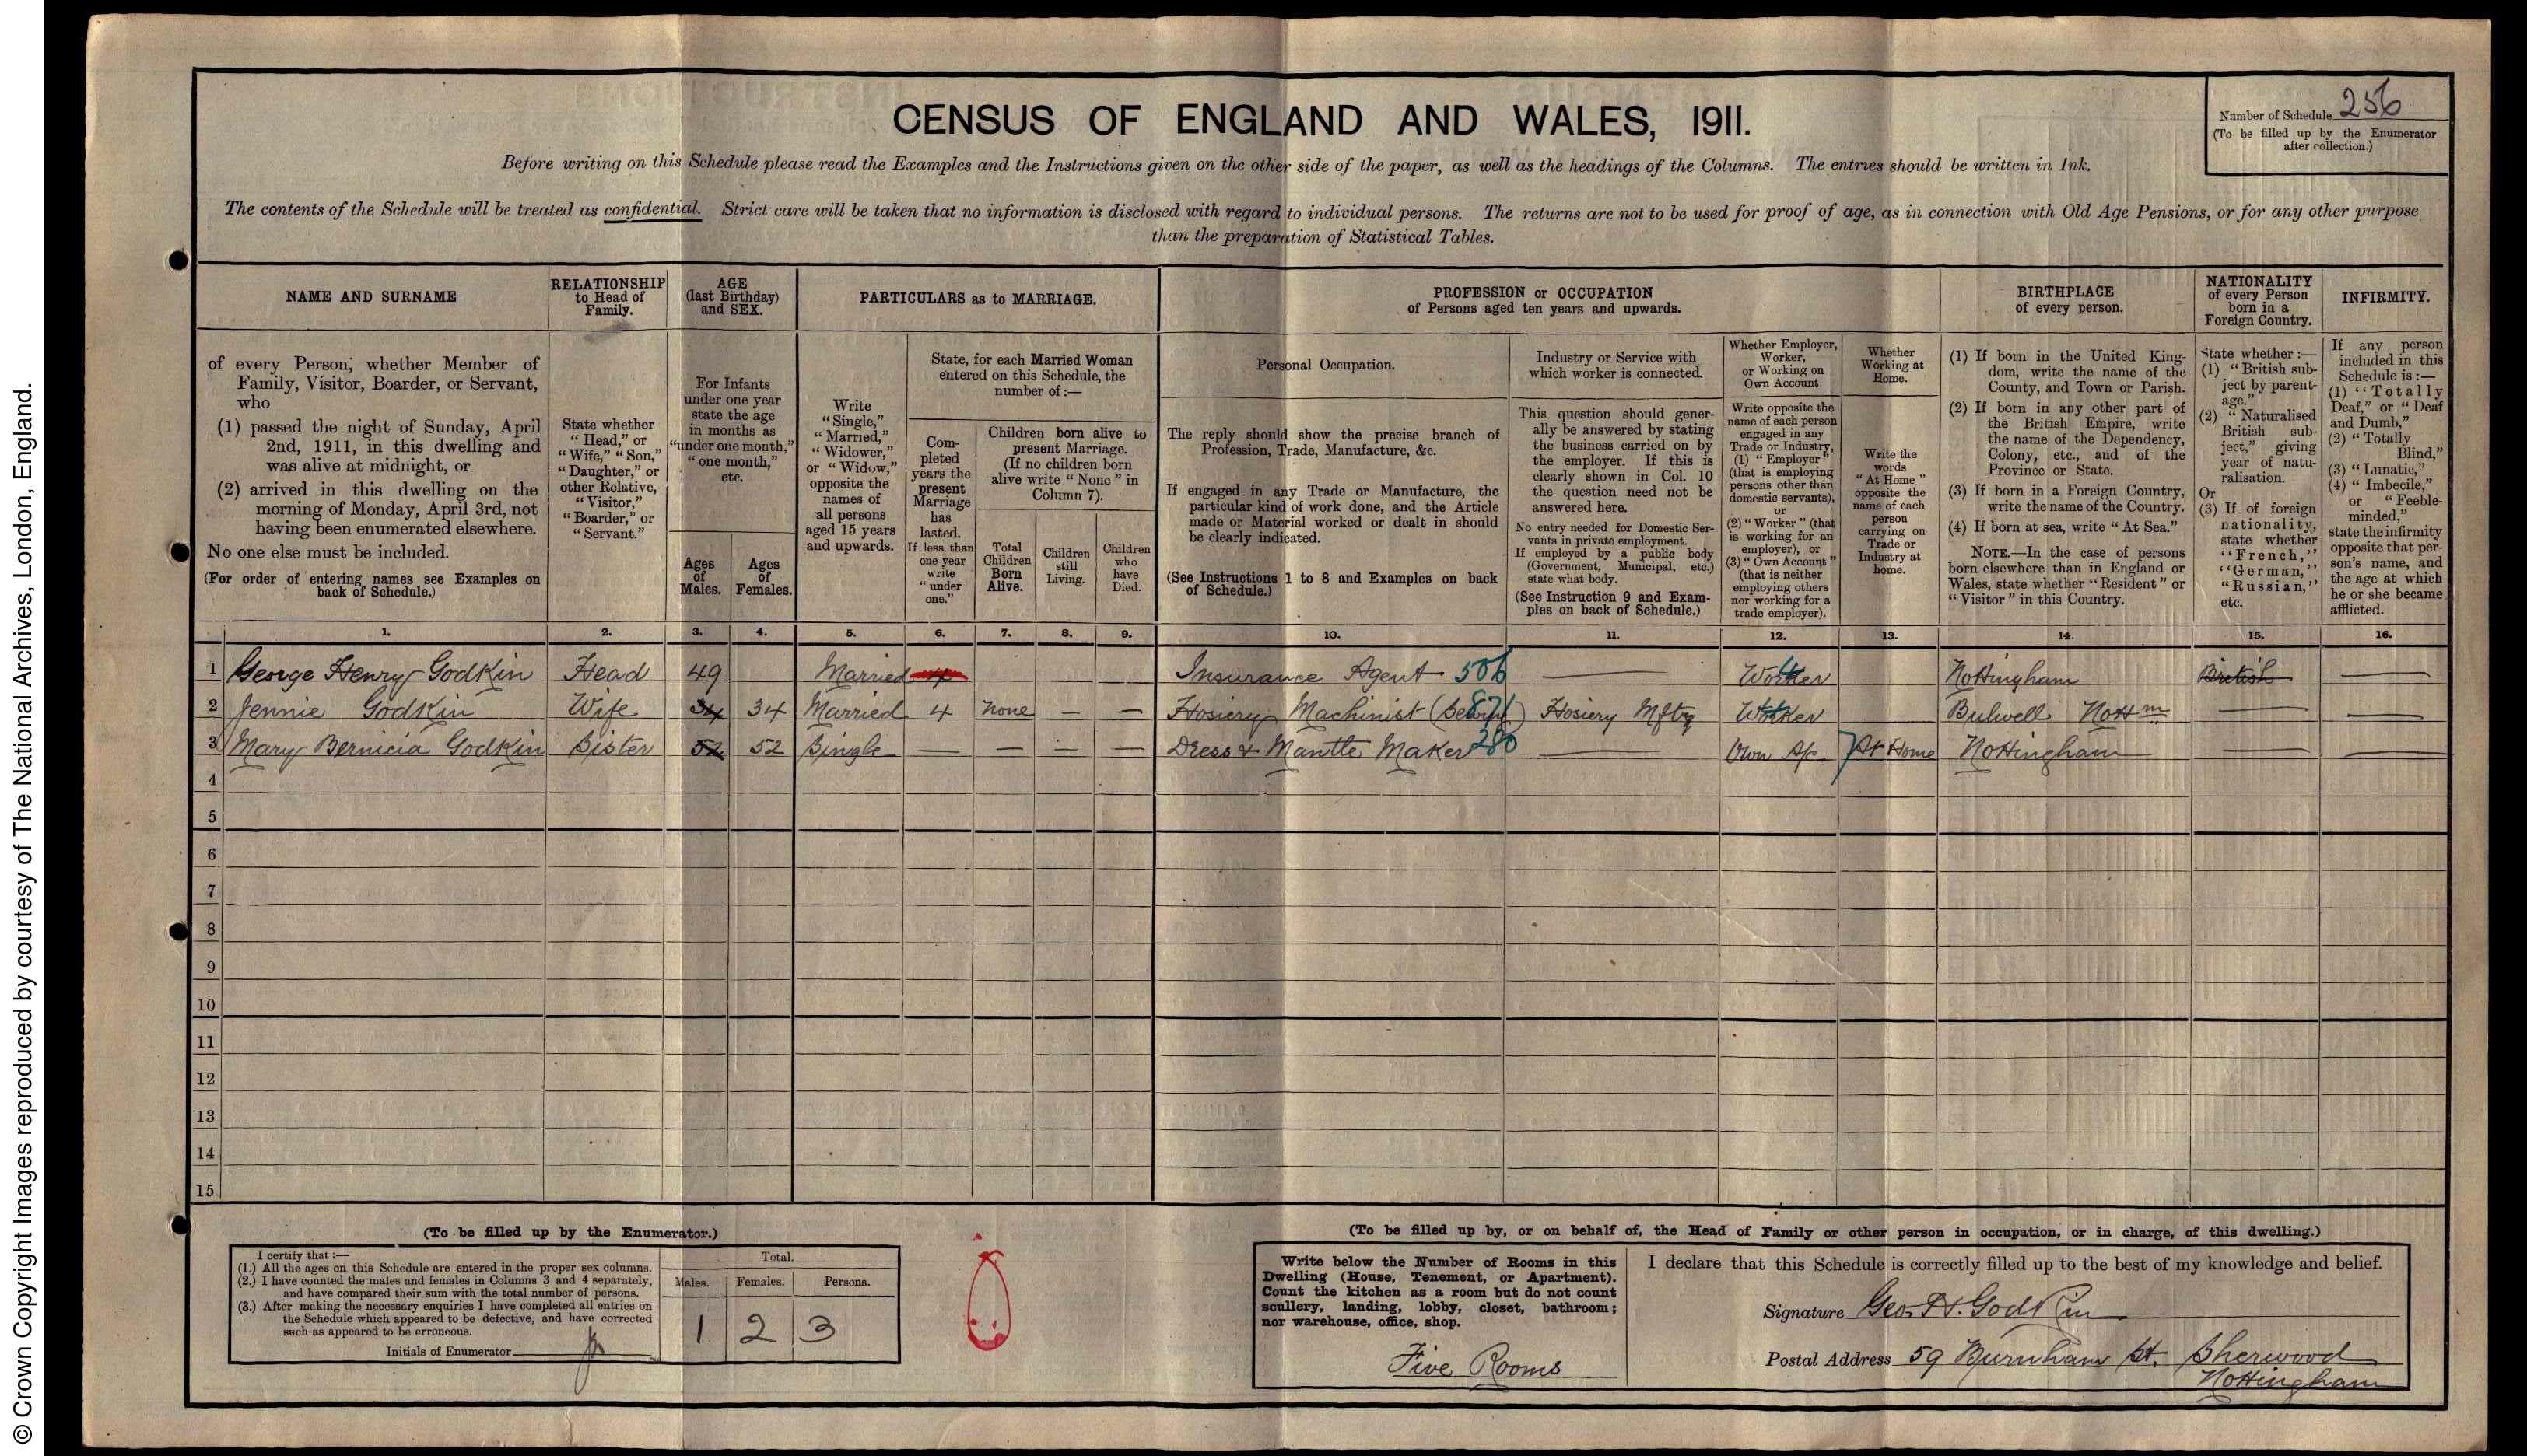 © Crown Copyright Images reproduced by courtesy of The National Archives, London, England.
CENSUS OF ENGLAND AND WALES, 1911.
Number of Schedule 256
(To be filled up by the Enumerator
after collection.)
Before writing on this Schedule please read the Examples and the Instructions given on the other side of the paper, as well as the headings of the Columns. The entries should be written in Ink.
The contents of the Schedule will be treated as confidential. Strict care will be taken that no information is disclosed with regard to individual persons. The returns are not to be used for proof of age, as in connection with Old Age Pensions, or for any other purpose
than the preparation of Statistical Tables.
NAME AND SURNAME
of every Person, whether Member of
Family, Visitor, Boarder, or Servant,
who
(1) passed the night of Sunday, April
2nd, 1911, in this dwelling and
was alive at midnight, or
(2) arrived in this dwelling on the
morning of Monday, April 3rd, not
having been enumerated elsewhere.
No one else must be included.
(For order of entering names see Examples on
back of Schedule.)
RELATIONSHIP
to Head of
Family.
State whether
"Head," or
"Wife," "Son,"
"Daughter," or
other Relative,
"Visitor,"
"Boarder," or
"Servant."
AGE
(last Birthday)
and SEX.
For Infants
under one year
state the age
in months as
"under one month,"
"one month,"
etc.
Ages
of
Males.
Ages
of
Females.
PARTICULARS as to MARRIAGE.
Write
"Single,"
"Married,"
"Widower,"
or "Widow,"
opposite the
names of
all persons
aged 15 years
and upwards.
State, for each Married Woman
entered on this Schedule, the
number of :—
Com-
pleted
years the
present
Marriage
has
lasted.
If less than
one year
write
"under
one."
Children born alive to
present Marriage.
(If no children born
alive write "None" in
Column 7).
Total
Children
Born
Alive.
Children
still
Living.
Children
who
have
Died.
PROFESSION or OCCUPATION
of Persons aged ten years and upwards.
Personal Occupation.
The reply should show the precise branch of
Profession, Trade, Manufacture, &c.
If engaged in any Trade or Manufacture, the
particular kind of work done, and the Article
made or Material worked or dealt in should
be clearly indicated.
(See Instructions 1 to 8 and Examples on back
of Schedule.)
Industry or Service with
which worker is connected.
This question should gener-
ally be answered by stating
the business carried on by
the employer. If this is
clearly shown in Col. 10
the question need not be
answered here.
No entry needed for Domestic Ser-
vants in private employment.
If employed by a public body
(Government, Municipal, etc.)
state what body.
(See Instruction 9 and Exam-
ples on back of Schedule.)
Whether Employer,
Worker,
or Working on
Own Account.
Write opposite the
name of each person
engaged in any
Trade or Industry,
(1) "Employer"
(that is employing
persons other than
domestic servants),
or
(2) "Worker" (that
is working for an
employer), or
(3) "Own Account"
(that is neither
employing others
nor working for a
trade employer).
Whether
Working at
Home.
Write the
words
"At Home"
opposite the
name of each
person
carrying on
Trade or
Industry at
home.
BIRTHPLACE
of every person.
(1) If born in the United King-
dom, write the name of the
County, and Town or Parish.
(2) If born in any other part of
the British Empire, write
the name of the Dependency,
Colony, etc., and of the
Province or State.
(3) If born in a Foreign Country,
write the name of the Country.
(4) If born at sea, write "At Sea."
NOTE.—In the case of persons
born elsewhere than in England or
Wales, state whether "Resident" or
"Visitor" in this Country.
NATIONALITY
of every Person
born in a
Foreign Country.
State whether :—
(1) "British sub-
ject by parent-
age."
(2) "Naturalised
British sub-
ject," giving
year of natu-
ralisation.
Or
(3) If of foreign
nationality,
state whether
"French,"
"German,"
"Russian,"
etc.
INFIRMITY.
If any person
included in this
Schedule is :—
(1) "Totally
Deaf," or "Deaf
and Dumb,"
(2) "Totally
Blind,"
(3) "Lunatic,"
(4) "Imbecile,"
or "Feeble-
minded,"
state the infirmity
opposite that per-
son's name, and
the age at which
he or she became
afflicted.
1. 2. 3. 4. 5. 6. 7. 8. 9. 10. 11. 12. 13. 14. 15. 16.
1 George Henry Godkin Head 49 Married 4 Insurance Agent 506 — Worker Nottingham British —
2 Jennie Godkin Wife 34 34 Married 4 None — — Hosiery Machinist 871 Hosiery Mftg Worker Bulwell Nottm — —
3 Mary Bernicia Godkin Sister 52 52 Single — — — — Dress & Mantle Maker 280 — Own A/c At Home Nottingham — —
4
5
6
7
8
9
10
11
12
13
14
15
(To be filled up by the Enumerator.)
I certify that :—
(1.) All the ages on this Schedule are entered in the proper sex columns.
(2.) I have counted the males and females in Columns 3 and 4 separately,
and have compared their sum with the total number of persons.
(3.) After making the necessary enquiries I have completed all entries on
the Schedule which appeared to be defective, and have corrected
such as appeared to be erroneous.
Initials of Enumerator
Total.
Males. Females. Persons.
1 2 3
(To be filled up by, or on behalf of, the Head of Family or other person in occupation, or in charge, of this dwelling.)
Write below the Number of Rooms in this
Dwelling (House, Tenement, or Apartment).
Count the kitchen as a room but do not count
scullery, landing, lobby, closet, bathroom;
nor warehouse, office, shop.
Five Rooms
I declare that this Schedule is correctly filled up to the best of my knowledge and belief.
Signature Geo. H. Godkin
Postal Address 59 Burnham St. Sherwood
Nottingham